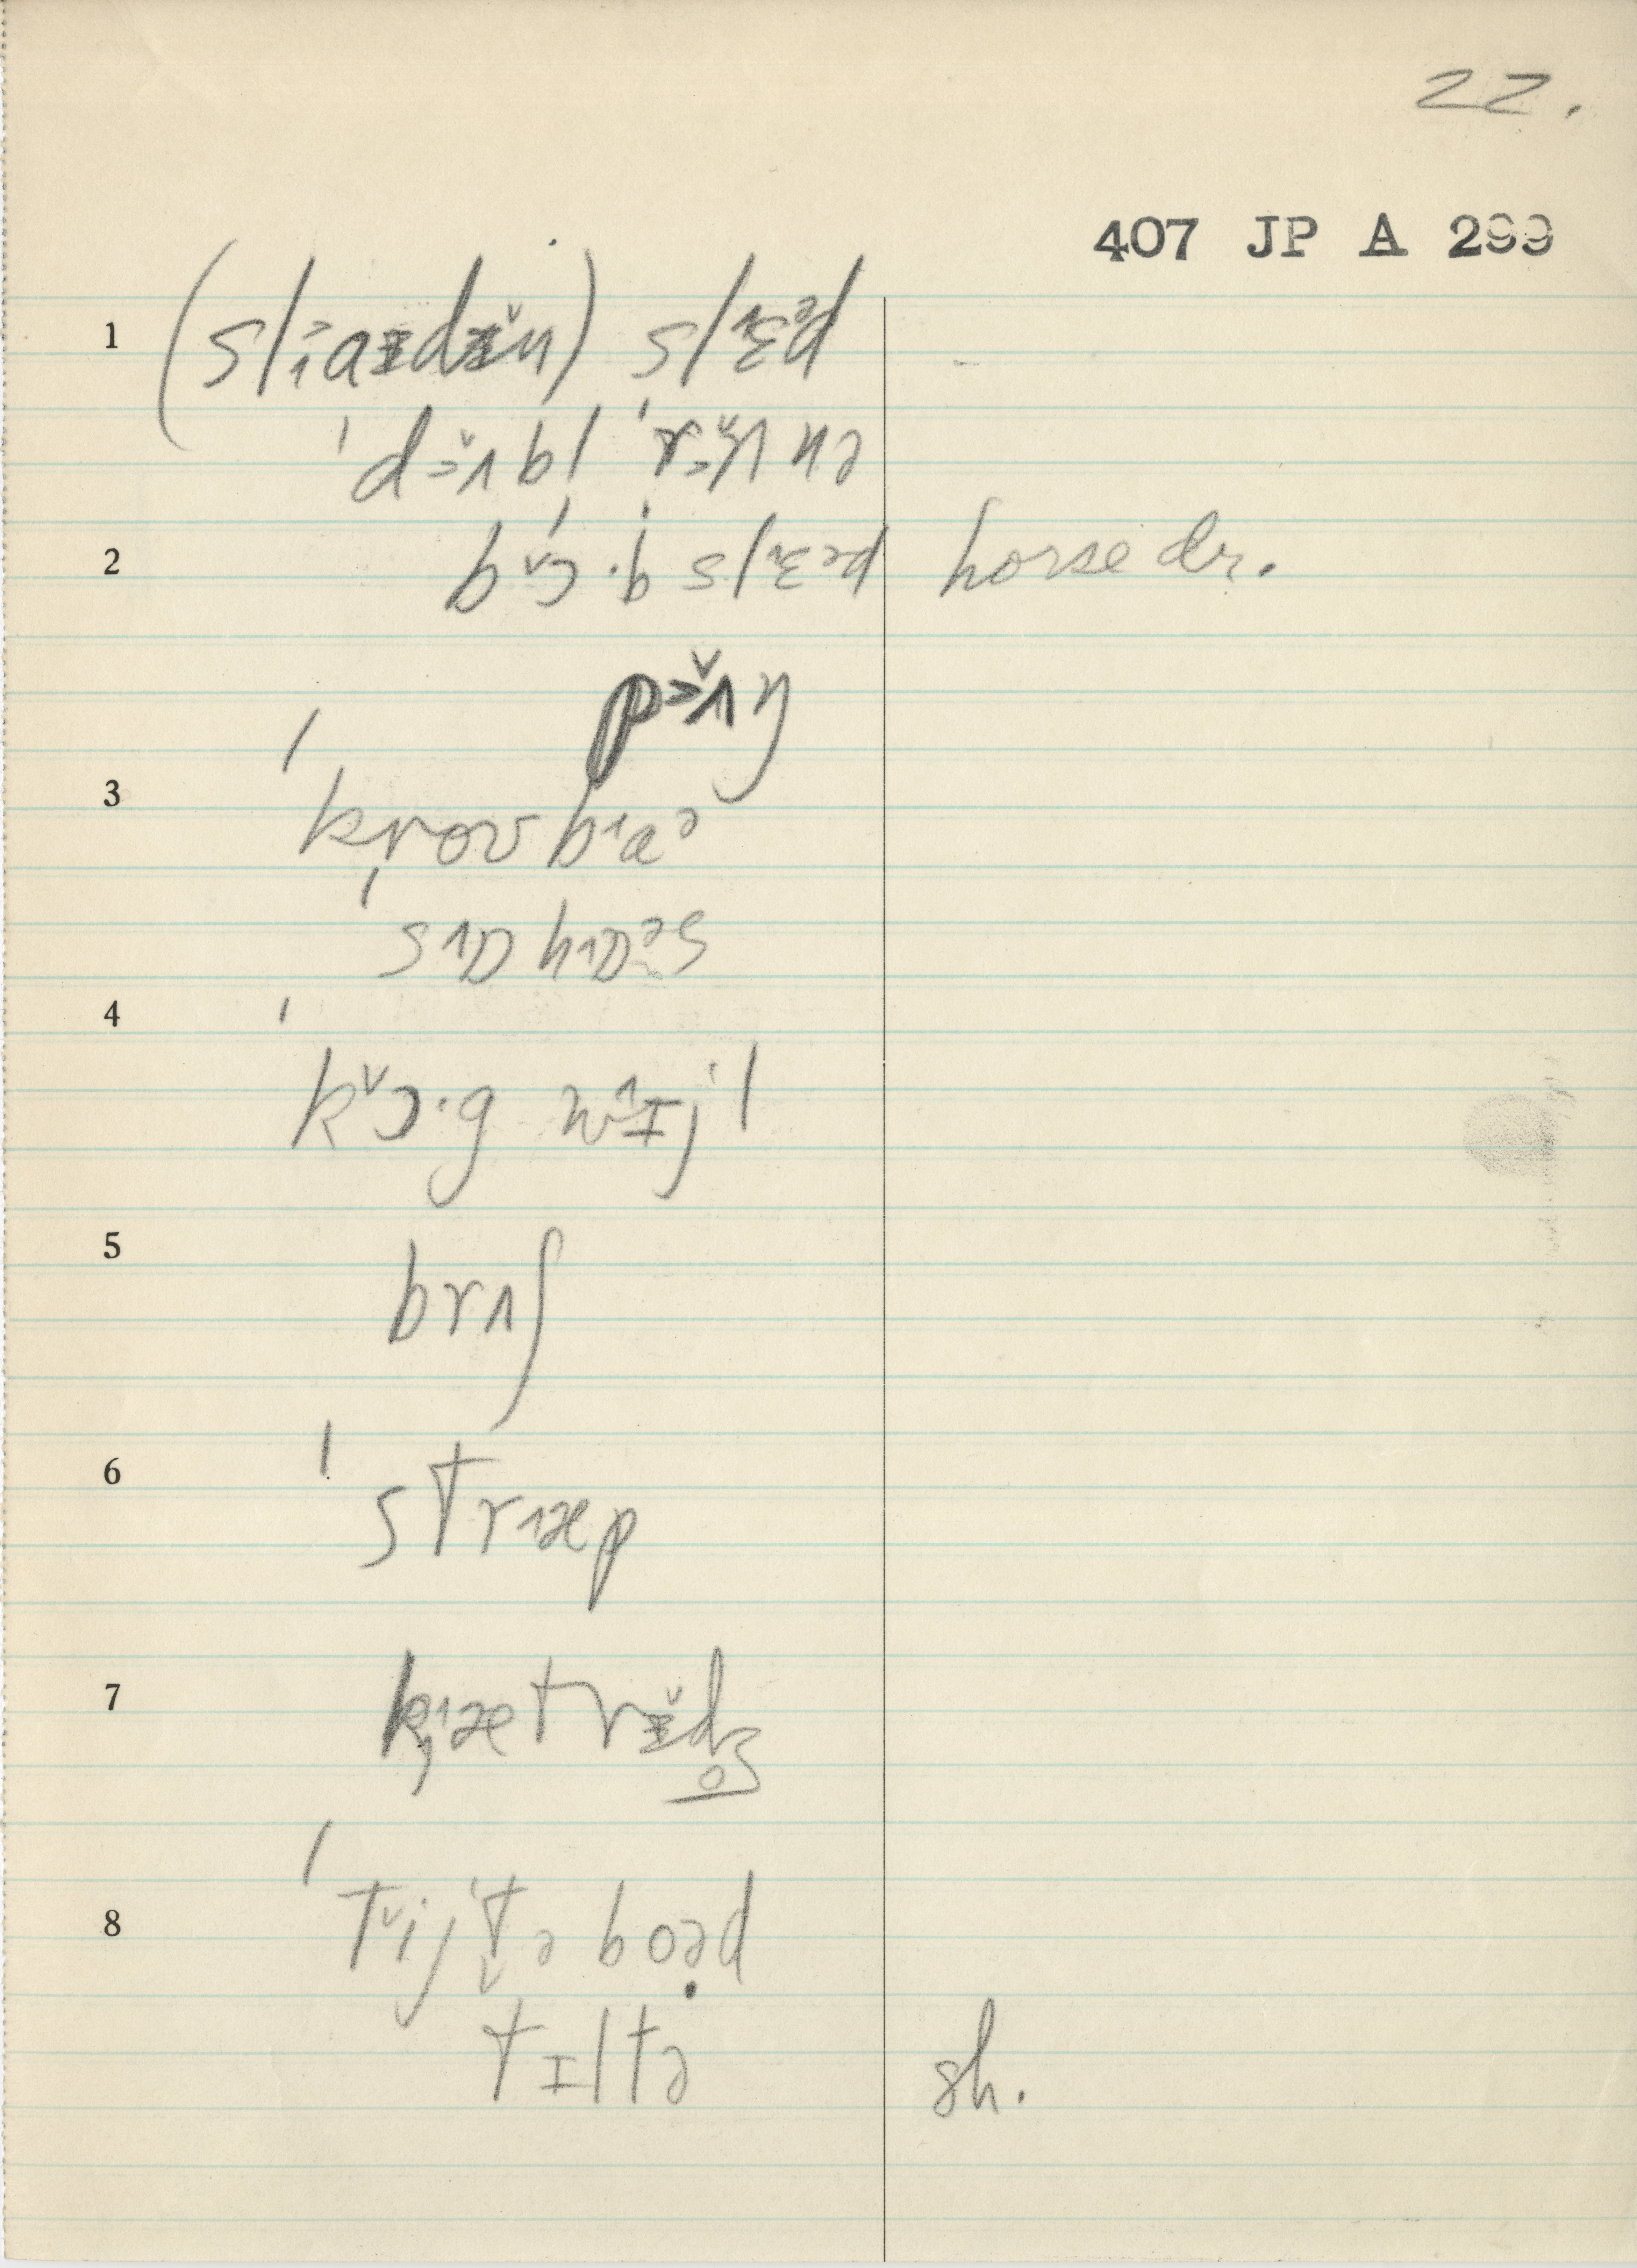 22.
407 JP A 299
1 (slˈaɪdɪ̌ŋ) slɛ˄ᵊd
ˈdə̌ʌbl ˈrə̌ʌnə
2 bɔ̌·b slɛ˄ᵊd horse dr.
pə̌ʌŋ
3 ˈkrovba˄ᵊ
ˈsɒ˄hɒ˄ᵊs
4 ˈkɔ̌·g wɪ˄jˈl
5 brʌʃ
6 ˈstræ˄p
7 kæ˄trɪ̌dʒ̥
8 ˈtǐjˈt̬ə boəd
tɪltə sh.